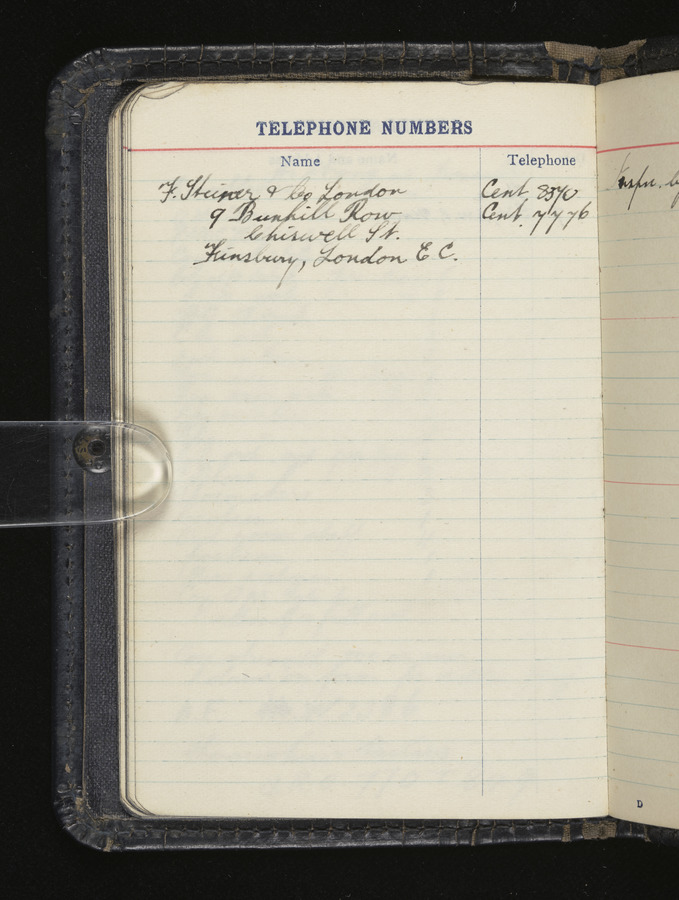 TELEPHONE NUMBERS
Name Telephone
F. Steiner & Co London Cent 8570
9 Bunhill Row Cent. 7776
Chiswell St.
Finsbury, London E C.
D